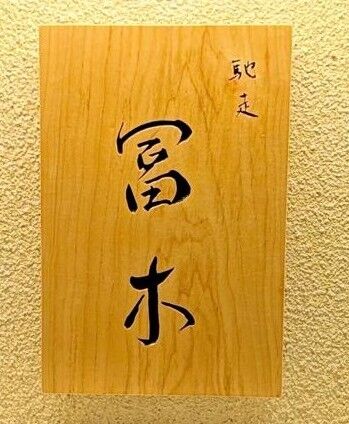 馳走
冨木